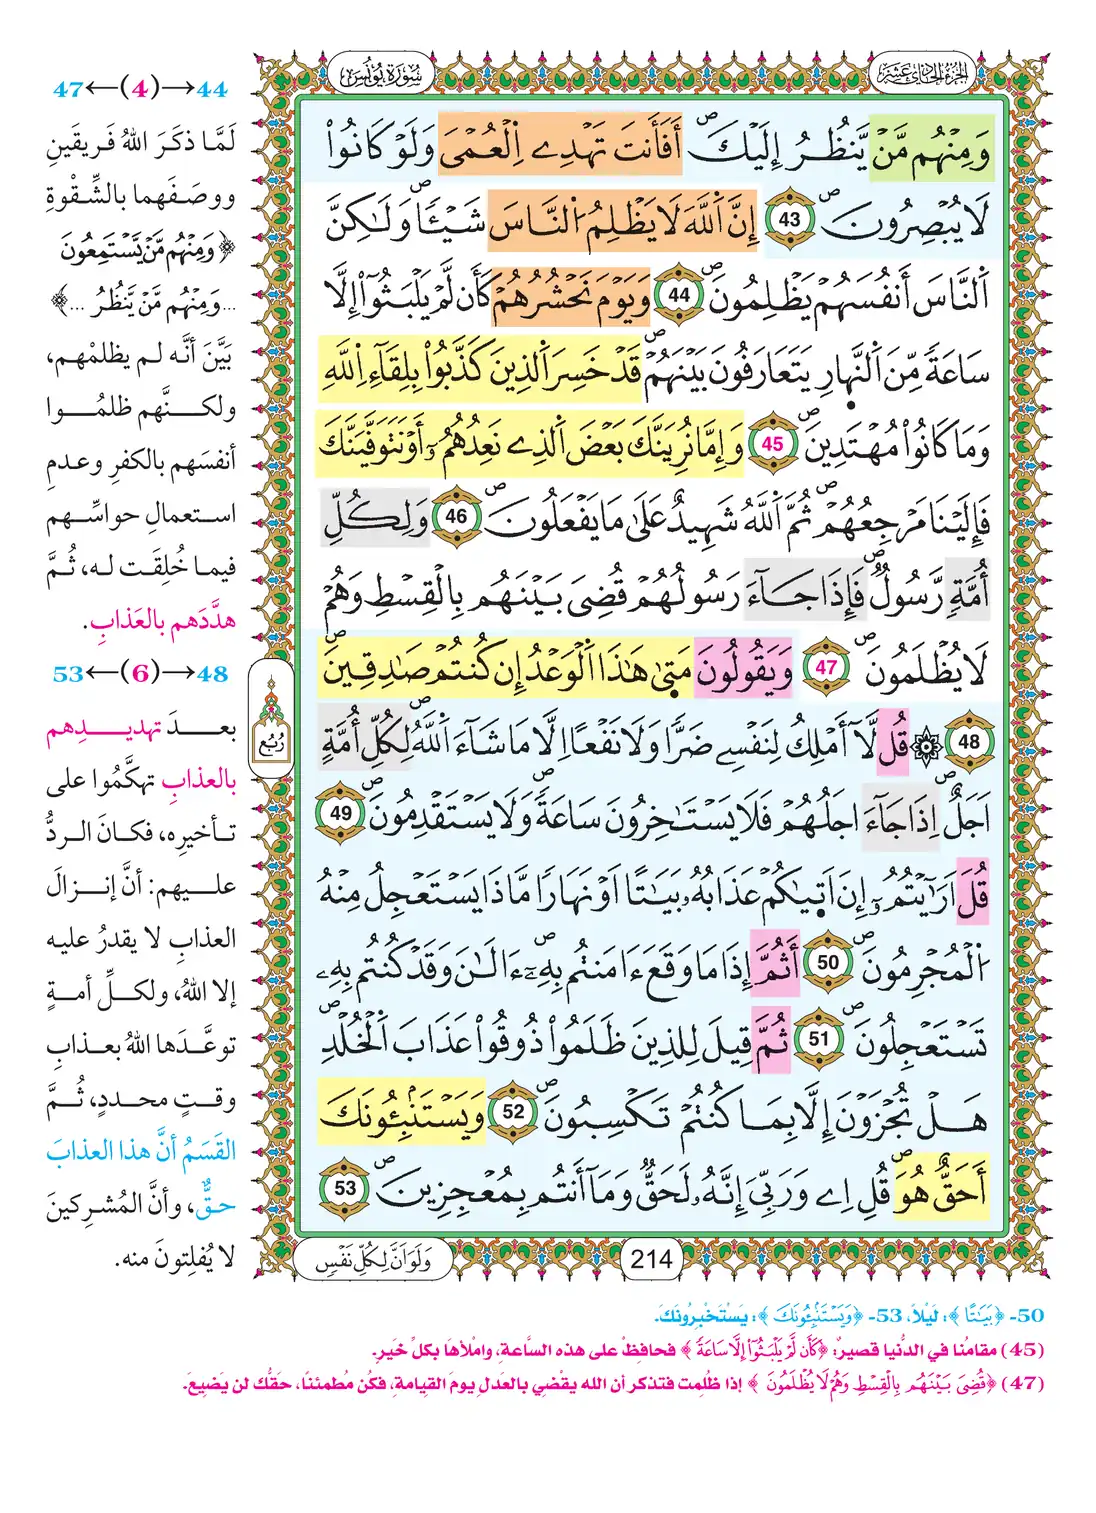 الجزء الحادي عشر
سورة يونس
وَمِنْهُم مَّنْ يَّنظُرُ إِلَيْكَ أَفَأَنتَ تَهْدِے اِ۬لْعُمْيَ وَلَوْ كَانُواْ
لَا يُبْصِرُونَ 43 إِنَّ اَ۬للَّهَ لَا يَظْلِمُ اُ۬لنَّاسَ شَيْـٔٗا وَلَٰكِنَّ
اَ۬لنَّاسَ أَنفُسَهُمْ يَظْلِمُونَ 44 وَيَوْمَ نَحْشُرُهُمْ كَأَن لَّمْ يَلْبَثُوٓاْ إِلَّا
سَاعَةٗ مِّنَ اَ۬لنَّهَارِ يَتَعَارَفُونَ بَيْنَهُمْ قَدْ خَسِرَ اَ۬لذِينَ كَذَّبُواْ بِلِقَآءِ اِ۬للَّهِ
وَمَا كَانُواْ مُهْتَدِينَ 45 وَإِمَّا نُرِيَنَّكَ بَعْضَ اَ۬لذِے نَعِدُهُمُۥٓ أَوْ نَتَوَفَّيَنَّكَ
فَإِلَيْنَا مَرْجِعُهُمْ ثُمَّ اَ۬للَّهُ شَهِيدٌ عَلَىٰ مَا يَفْعَلُونَ 46 وَلِكُلِّ
أُمَّةٖ رَّسُولٞ فَإِذَا جَآءَ رَسُولُهُمْ قُضِيَ بَيْنَهُم بِالْقِسْطِ وَهُمْ
لَا يُظْلَمُونَ 47 وَيَقُولُونَ مَتَىٰ هَٰذَا اَ۬لْوَعْدُ إِن كُنتُمْ صَٰدِقِينَ
48 ۞ قُل لَّآ أَمْلِكُ لِنَفْسِے ضَرّٗا وَلَا نَفْعاً اِلَّا مَا شَآءَ اَ۬للَّهُ لِكُلِّ أُمَّةٍ
اَجَلٌ اِذَا جَآءَ اجَلُهُمْ فَلَا يَسْتَٰخِرُونَ سَاعَةٗ وَلَا يَسْتَقْدِمُونَ 49
قُلَ اَرَٰٓيْتُمُۥٓ إِنَ اَت۪يٰكُمْ عَذَابُهُۥ بَيَٰتاً اَوْ نَهَارٗا مَّاذَا يَسْتَعْجِلُ مِنْهُ
اُ۬لْمُجْرِمُونَ 50 أَثُمَّ إِذَا مَا وَقَعَ ءَامَنتُم بِهِۦٓ ءَآلَٰنَ وَقَدْ كُنتُم بِهِۦ
تَسْتَعْجِلُونَ 51 ثُمَّ قِيلَ لِلذِينَ ظَلَمُواْ ذُوقُواْ عَذَابَ اَ۬لْخُلْدِ
هَلْ تُجْزَوْنَ إِلَّا بِمَا كُنتُمْ تَكْسِبُونَ 52 وَيَسْتَنۢبِـُٔونَكَ
أَحَقٌّ هُوَ قُلِ اِے وَرَبِّيَ إِنَّهُۥ لَحَقّٞ وَمَآ أَنتُم بِمُعْجِزِينَ 53
وَلَوَ اَنَّ لِكُلِّ نَفْسٖ
214
رُبُع
44→(4)←47
لَمَّا ذكَرَ اللهُ فَريقَينِ
ووصَفَهما بالشِّقْوةِ
﴿وَمِنْهُم مَّنْ يَّسْتَمِعُونَ
...وَمِنْهُم مَّنْ يَّنظُرُ ...﴾
بَيَّنَ أنَّه لم يظلمْهم،
ولكنَّهم ظلمُوا
أنفسَهم بالكفرِ وعدمِ
استعمالِ حواسِّهم
فيما خُلِقَت له، ثُمَّ
هدَّدَهم بالعَذابِ.
48→(6)←53
بعدَ تهديدِهم
بالعذابِ تهكَّمُوا على
تأخيرِه، فكانَ الردُّ
عليهم: أنَّ إنزالَ
العذابِ لا يقدرُ عليه
إلا اللهُ، ولكلِّ أمةٍ
توعَّدَها اللهُ بعذابٍ
وقتٍ محددٍ، ثُمَّ
القَسَمُ أنَّ هذا العذابَ
حقٌّ، وأنَّ المُشركينَ
لا يُفلِتونَ منه.
50- ﴿بَيَٰتًا﴾: لَيْلاً، 53- ﴿وَيَسْتَنۢبِـُٔونَكَ﴾: يَسْتَخْبِرُونَكَ.
(45) مقامُنا في الدُّنيا قصيرٌ: ﴿كَأَن لَّمْ يَلْبَثُوٓاْ إِلَّا سَاعَةٗ﴾ فحافِظْ على هذه السَّاعةِ، واملأها بكلِّ خَيرٍ.
(47) ﴿قُضِيَ بَيْنَهُم بِالْقِسْطِ وَهُمْ لَا يُظْلَمُونَ﴾ إذا ظُلِمت فتذكر أن الله يقْضي بالعَدلِ يومَ القِيامةِ، فكُن مُطمئنًا، حَقُّك لن يَضِيعَ.